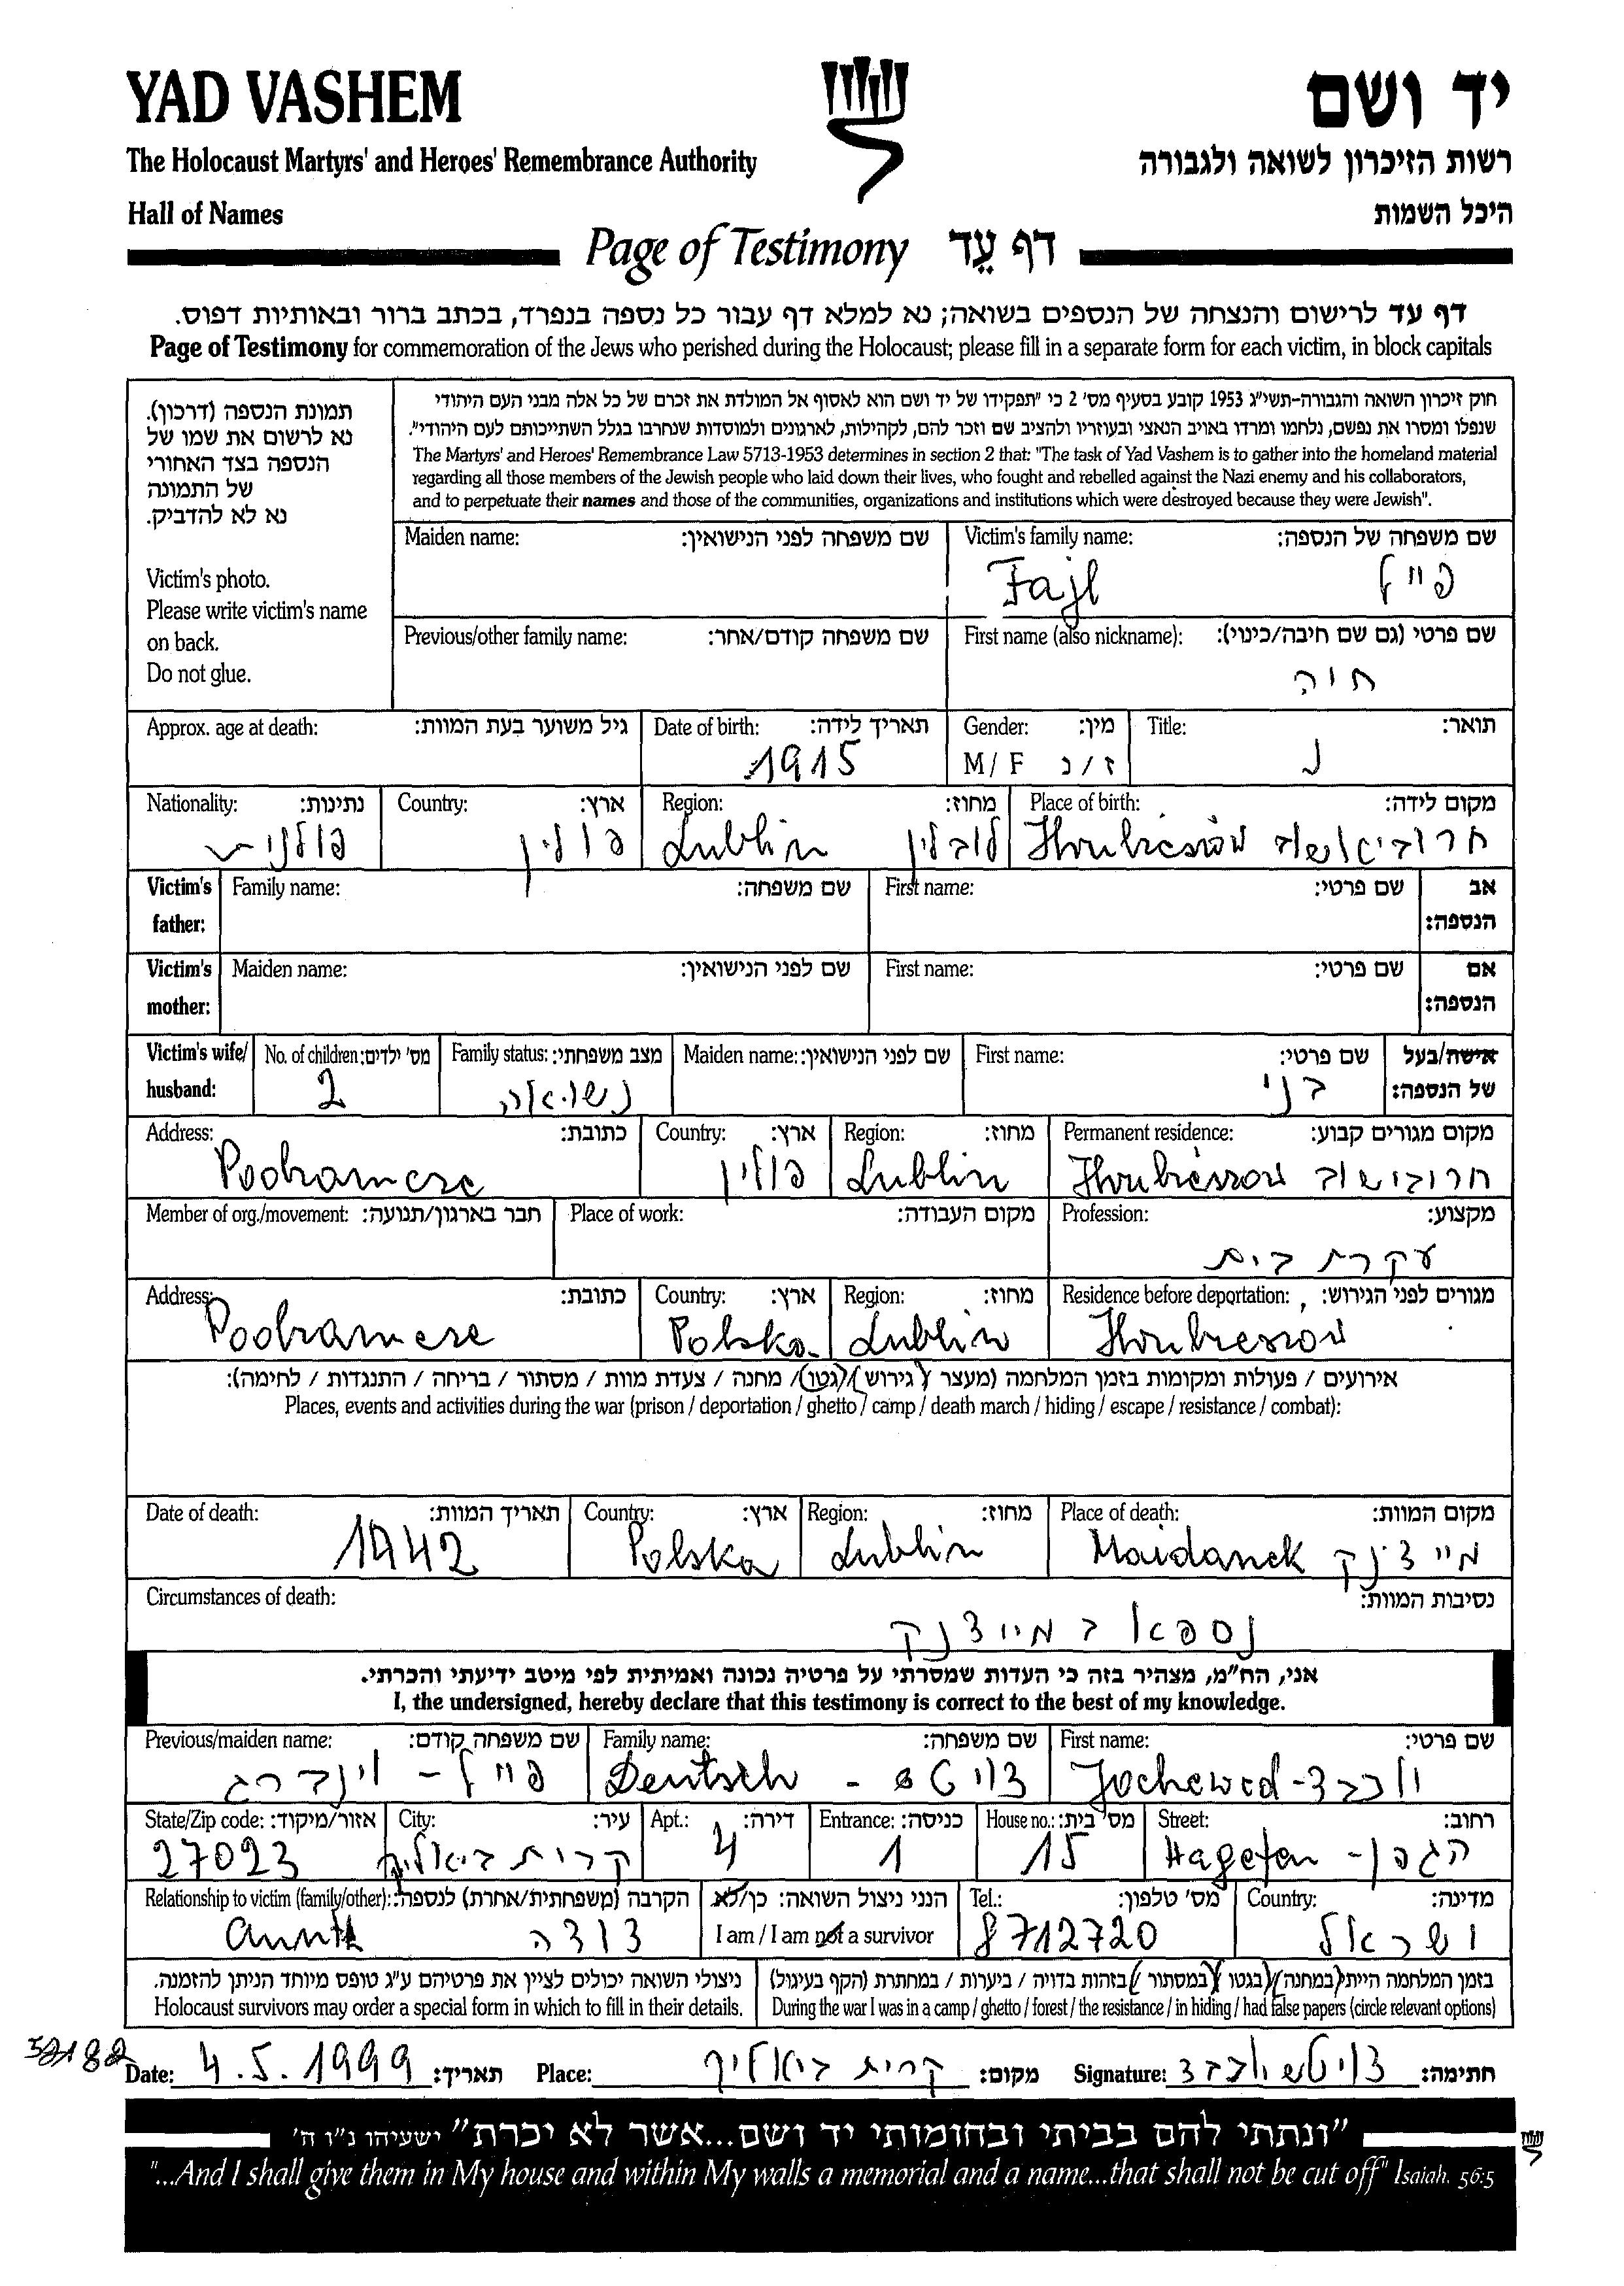 YAD VASHEM
יד ושם
The Holocaust Martyrs' and Heroes' Remembrance Authority
רשות הזיכרון לשואה ולגבורה
Hall of Names
היכל השמות
Page of Testimony דף עֵד
דף עד לרישום והנצחה של הנספים בשואה; נא למלא דף עבור כל נספה בנפרד, בכתב ברור ובאותיות דפוס.
Page of Testimony for commemoration of the Jews who perished during the Holocaust; please fill in a separate form for each victim, in block capitals
תמונת הנספה (דרכון).
נא לרשום את שמו של
הנספה בצד האחורי
של התמונה
נא לא להדביק.
Victim's photo.
Please write victim's name
on back.
Do not glue.
חוק זיכרון השואה והגבורה-תשי"ג 1953 קובע בסעיף מס' 2 כי "תפקידו של יד ושם הוא לאסוף אל המולדת את זכרם של כל אלה מבני העם היהודי
שנפלו ומסרו את נפשם, נלחמו ומרדו באויב הנאצי ובעוזריו ולהציב שם וזכר להם, לקהילות, לארגונים ולמוסדות שנחרבו בגלל השתייכותם לעם היהודי".
The Martyrs' and Heroes' Remembrance Law 5713-1953 determines in section 2 that: "The task of Yad Vashem is to gather into the homeland material
regarding all those members of the Jewish people who laid down their lives, who fought and rebelled against the Nazi enemy and his collaborators,
and to perpetuate their names and those of the communities, organizations and institutions which were destroyed because they were Jewish".
Maiden name: שם משפחה לפני הנישואין:
Victim's family name: שם משפחה של הנספה:
Fajl פייל
Previous/other family name: שם משפחה קודם/אחר:
First name (also nickname): שם פרטי (גם שם חיבה/כינוי):
חיה
Approx. age at death: גיל משוער בעת המוות:
Date of birth: תאריך לידה:
1915
Gender: מין:
M / F ז / נ
Title: תואר:
Nationality: נתינות:
Country: ארץ:
פולין
Region: מחוז:
Lublin לובלין
Place of birth: מקום לידה:
Hrubiesrów
Victim's father: Family name: שם משפחה: First name: שם פרטי: אב הנספה:
Victim's mother: Maiden name: שם לפני הנישואין: First name: שם פרטי: אם הנספה:
Victim's wife/ husband:
No. of children: מס' ילדים:
2
Family status: מצב משפחתי:
נשואה
Maiden name: שם לפני הנישואין:
First name: שם פרטי:
בני
אישה/בעל של הנספה:
Address: כתובת:
Country: ארץ:
פולין
Region: מחוז:
Lublin
Permanent residence: מקום מגורים קבוע:
חרובישוב
Member of org./movement: חבר בארגון/תנועה:
Place of work: מקום העבודה:
Profession: מקצוע:
עקרת בית
Address: כתובת:
Country: ארץ:
Polska
Region: מחוז:
Lublin
Residence before deportation: מגורים לפני הגירוש:
אירועים / פעולות ומקומות בזמן המלחמה (מעצר / גירוש / גטו / מחנה / צעדת מוות / מסתור / בריחה / התנגדות / לחימה):
Places, events and activities during the war (prison / deportation / ghetto / camp / death march / hiding / escape / resistance / combat):
Date of death: תאריך המוות:
1942
Country: ארץ:
Polska
Region: מחוז:
Lublin
Place of death: מקום המוות:
Maidanek מיידנק
Circumstances of death: נסיבות המוות:
נספא במיידנק
אני, הח"מ, מצהיר בזה כי העדות שמסרתי על פרטיה נכונה ואמיתית לפי מיטב ידיעתי והכרתי.
I, the undersigned, hereby declare that this testimony is correct to the best of my knowledge.
Previous/maiden name: שם משפחה קודם:
פייל - וינברג
Family name: שם משפחה:
Deutsch - דויטש
First name: שם פרטי:
Jochewed - יוכבד
State/Zip code: אזור/מיקוד:
27023
City: עיר:
קרית ביאליק
Apt.: דירה:
4
Entrance: כניסה:
1
House no.: מס' בית:
15
Street: רחוב:
Hagefen - הגפן
Relationship to victim (family/other): הקרבה (משפחתית/אחרת) לנספה:
דודה
הנני ניצול השואה: כן/לא
I am / I am not a survivor
Tel.: מס' טלפון:
8712720
Country: מדינה:
ישראל
ניצולי השואה יכולים לציין את פרטיהם ע"ג טופס מיוחד הניתן להזמנה.
Holocaust survivors may order a special form in which to fill in their details.
בזמן המלחמה הייתי (במחנה / בגטו / במסתור / בזהות בדויה / ביערות / במחתרת (הקף בעיגול)
During the war I was in a camp / ghetto / forest / the resistance / in hiding / had false papers (circle relevant options)
Date: 4.5.1999 תאריך: Place: קרית ביאליק מקום: Signature: דויטש יוכבד חתימה:
"ונתתי להם בביתי ובחומותי יד ושם...אשר לא יכרת" ישעיהו נ"ו ה'
"...And I shall give them in My house and within My walls a memorial and a name...that shall not be cut off" Isaiah, 56:5